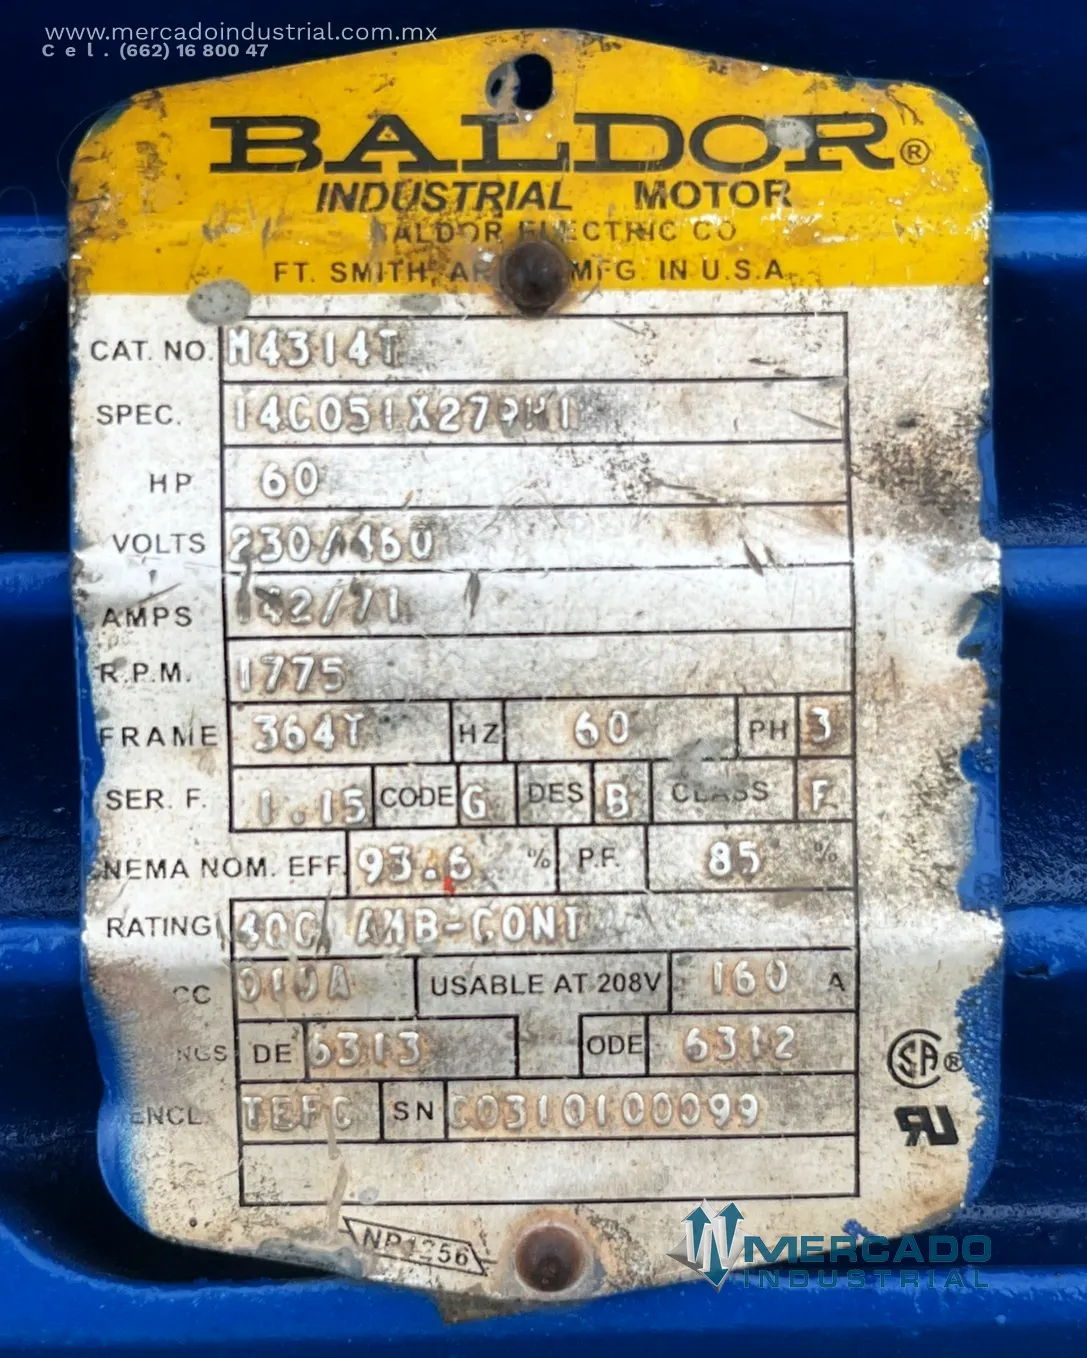 www.mercadoindustrial.com.mx
Cel. (662) 16 800 47
BALDOR®
INDUSTRIAL MOTOR
BALDOR ELECTRIC CO
FT. SMITH, MFG. IN U.S.A.
CAT. NO. M4314T
SPEC.
HP 60
VOLTS 230/460
AMPS 142/71
R.P.M. 1775
FRAME 364T HZ 60 PH 3
SER. F. 1.15 CODE G DES B CLASS F
NEMA NOM. EFF. 93.6 % P.F. 85 %
RATING 40C AMB-CONT
CC 010A USABLE AT 208V 160 A
NGS DE 6313 ODE 6312
ENCL. TEFC SN C0310100099
SA®
RU
NP1256
MERCADO
INDUSTRIAL